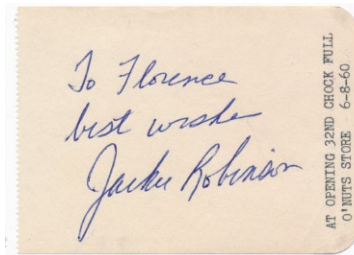 To Florence
best wishes
Jackie Robinson
AT OPENING 32ND CHOCK FULL
O'NUTS STORE 6-8-60